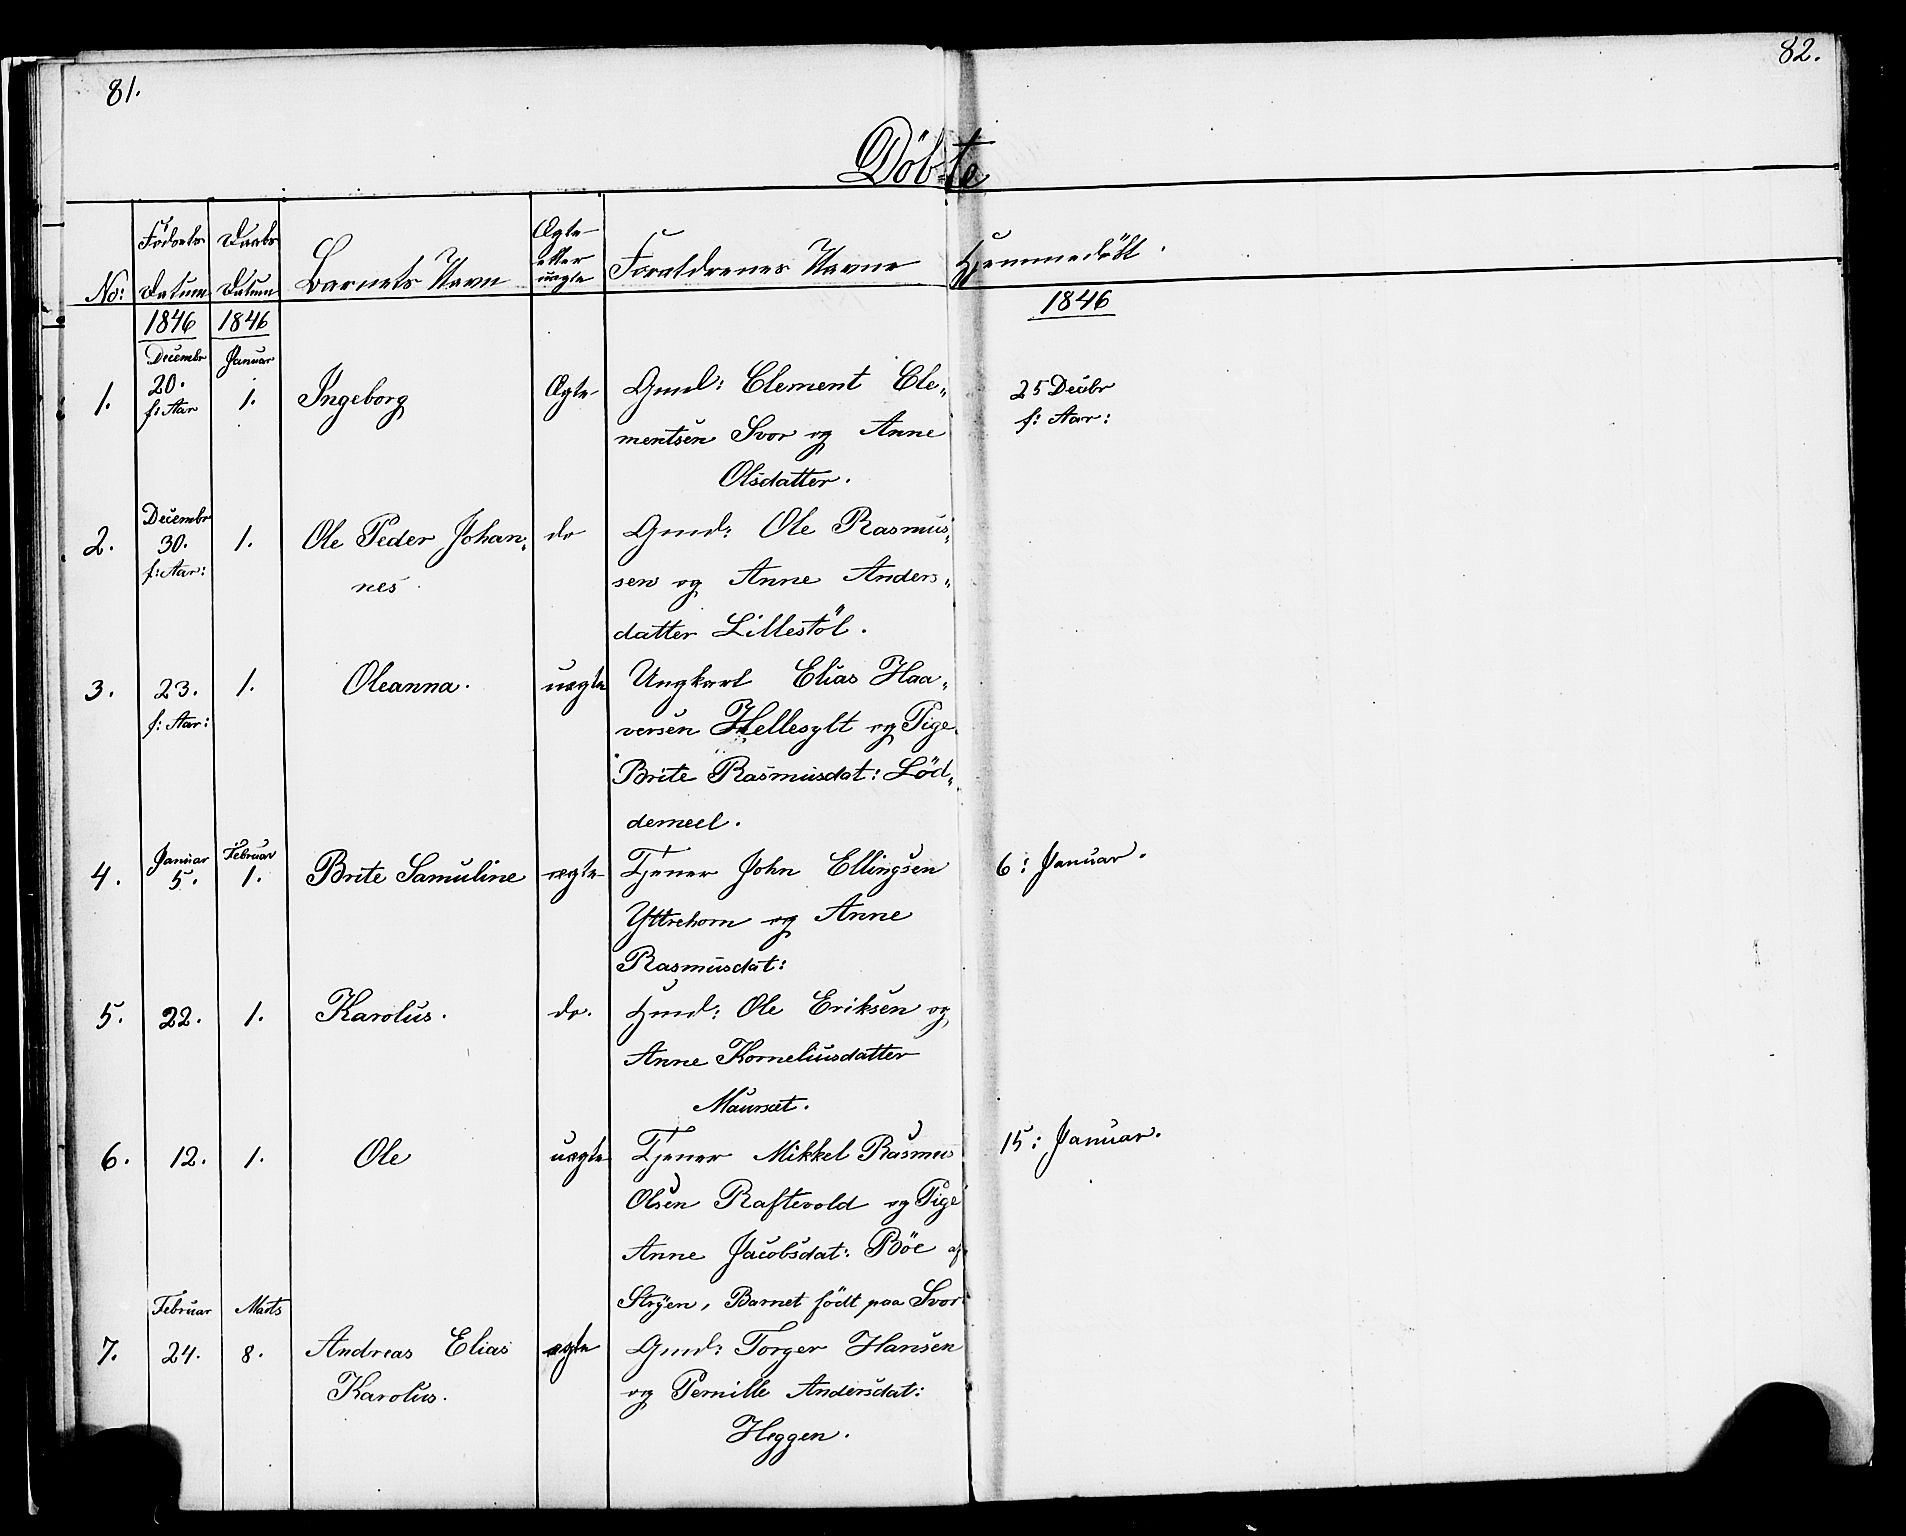 81.
82.
Döbte
No:
Födsels
Datum
Daabs
Datum
Barnets Navn
Ægte
eller
uægte
Forældrenes Navne
Hjemmedöbt.
1846
1846
1846
1.
Decembr
20.
f: Aar
Januar
1.
Ingeborg
Ægte
Gmd: Clement Cle„
mentsen Svor og Anne
Olsdatter.
25 Decbr
f: Aar:
2.
Decembr
30.
f: Aar:
1.
Ole Peder Johan„
nes
do
Gmd: Ole Rasmus„
sen og Anne Anders„
datter Lillestöl.
3.
23.
f: Aar:
1.
Oleanna.
uægte
Ungkarl Elias Haa„
versen Hellesylt og Pige
Brite Rasmusdat: Löd„
demeel.
4.
Januar
5.
Februar
1.
Brite Samuline
ægte
Tjener John Ellingsen
Yttrehorn og Anne
Rasmusdat:
6: Januar.
5.
22.
1.
Karolus.
do.
Hmd: Ole Eriksen og
Anne Korneliusdatter
Maurset.
6.
12.
1.
Ole
uægte
Tjener Mikkel Rasmus
Olsen Raftevold og Pige
Anne Jacobsdat: Böe af
Stryen, Barnet födt paa Svor
15: Januar.
7.
Februar
24.
Marts
8.
Andreas Elias
Karolus.
ægte
Gmd: Torger Hansen
og Pernille Andersdat:
Heggen.